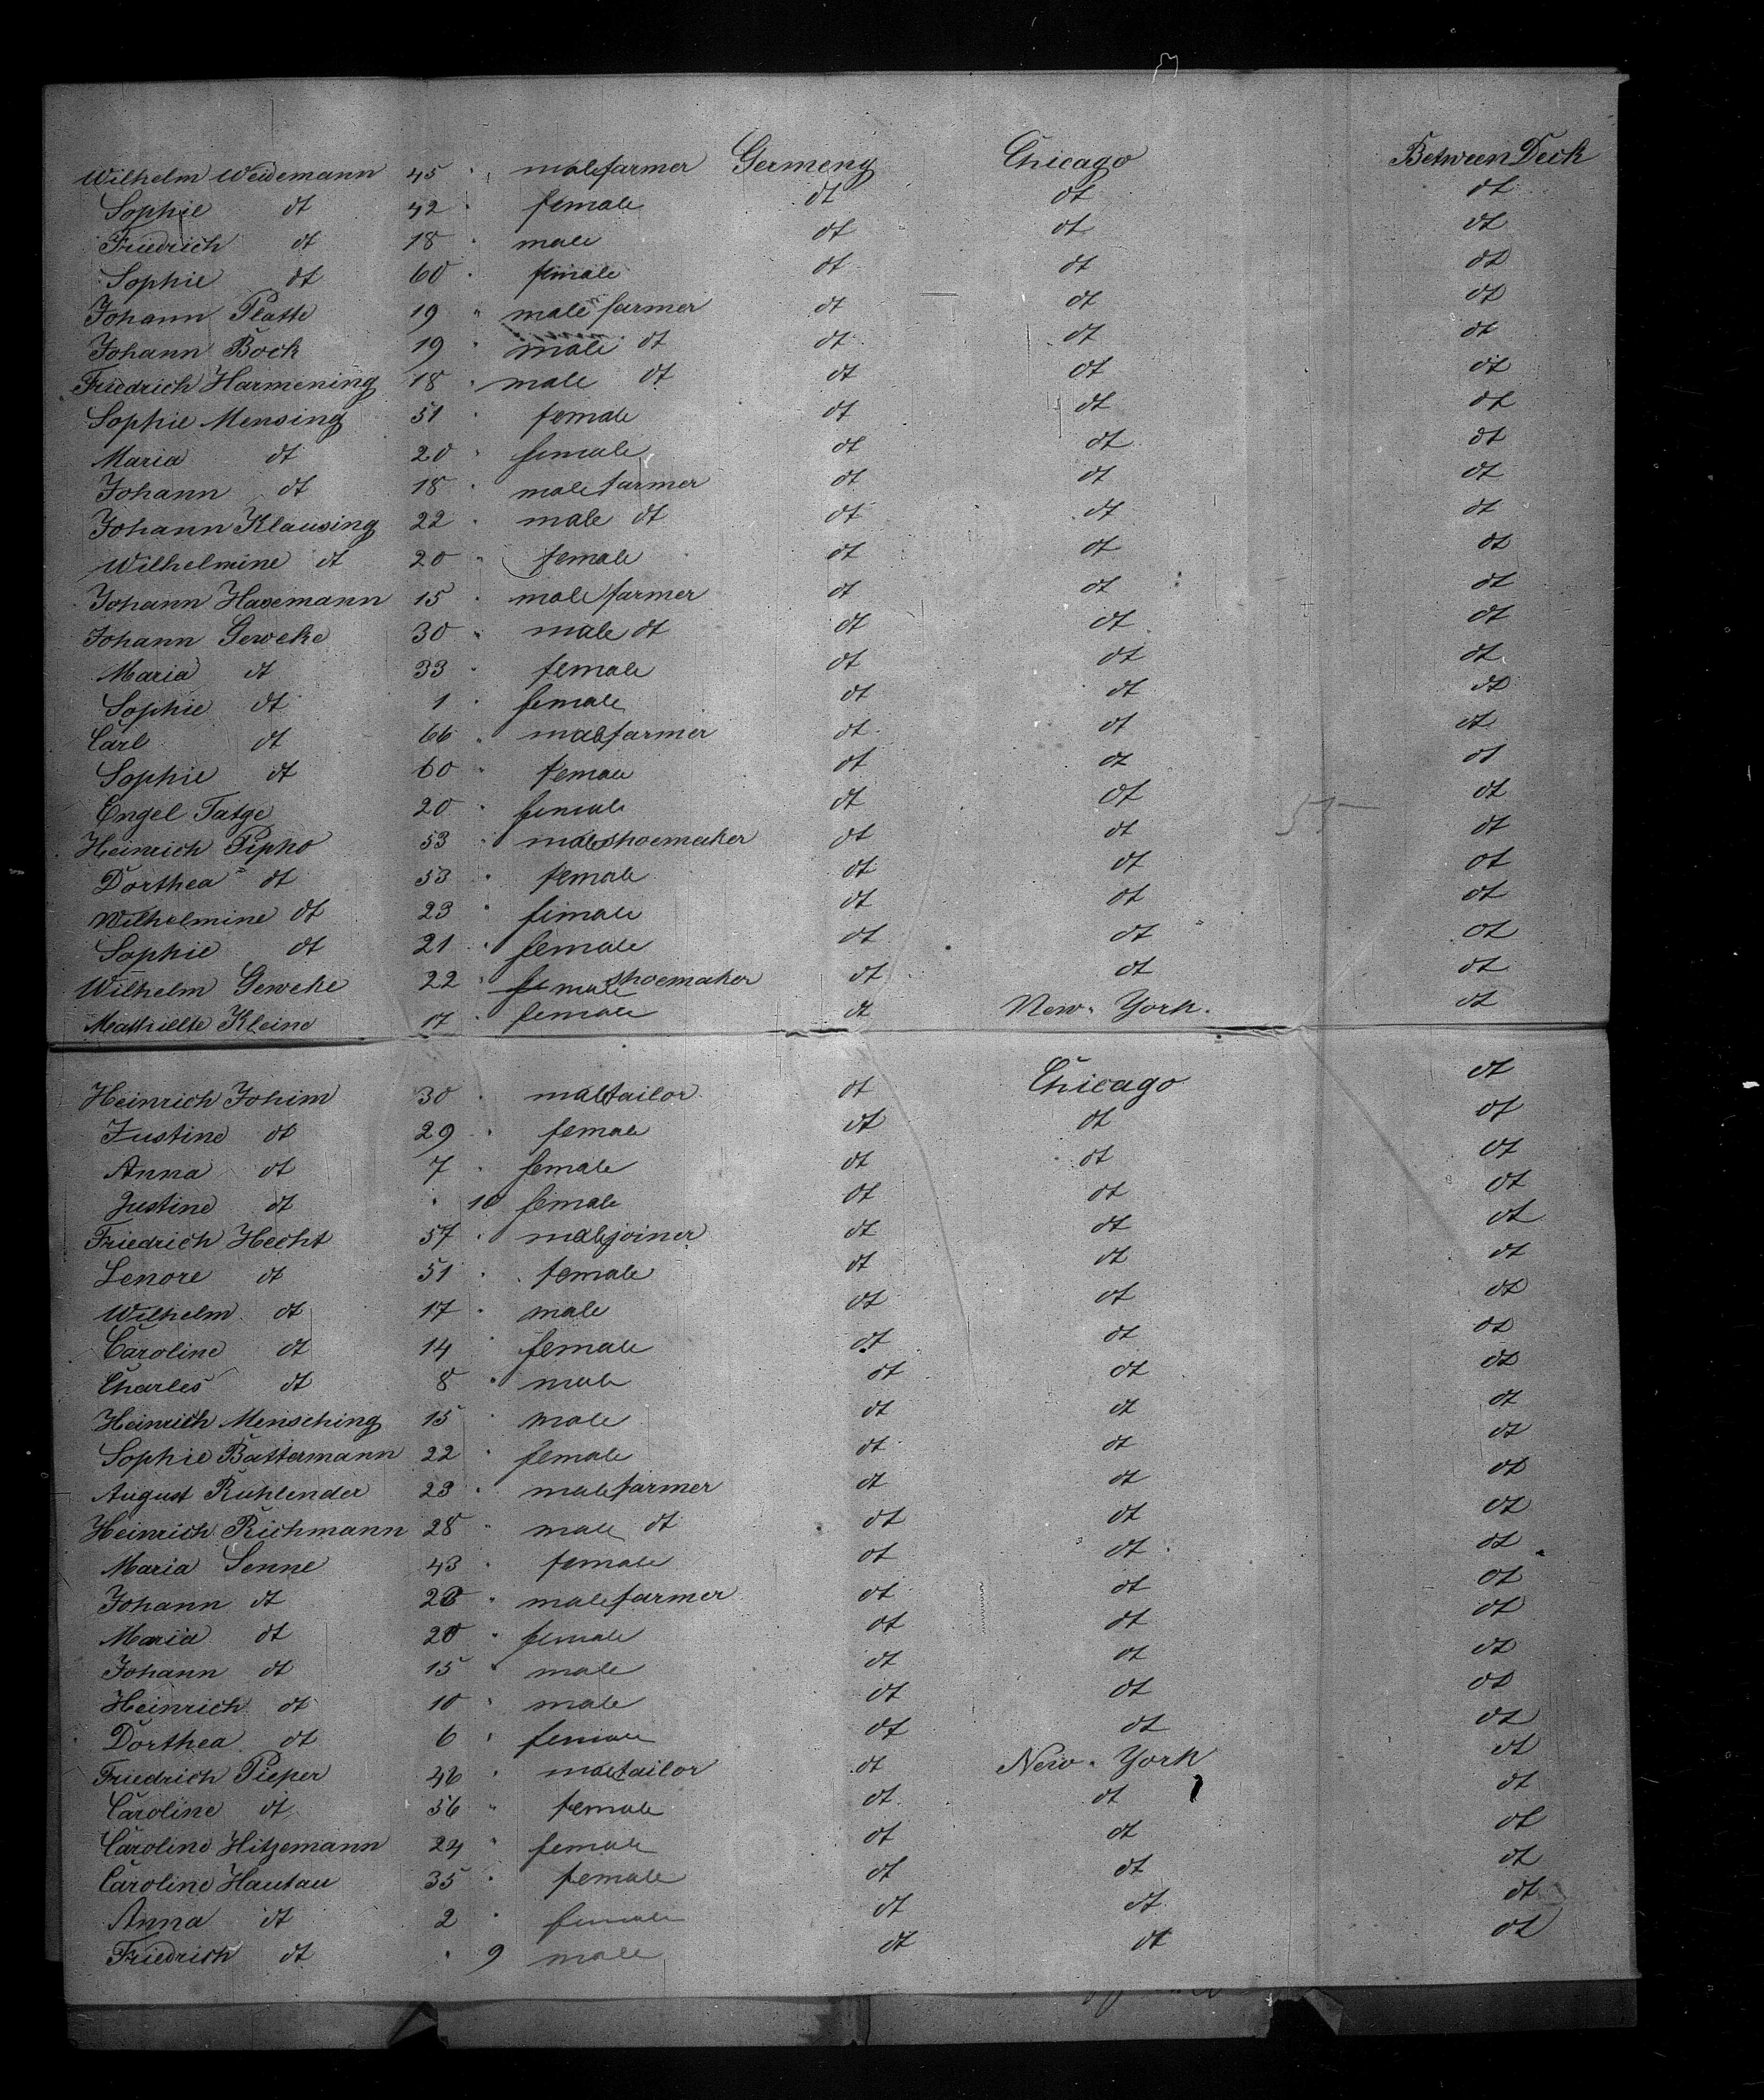 Wilhelm Weidemann 45 " male farmer Germeny Chicago Between Deck
Sophie dt 42 " female dt dt dt
Friedrich dt 18 " male dt dt dt
Sophie dt 60 " female dt dt dt
Johann Platte 19 " male farmer dt dt dt
Johann Bock 19 " male dt dt dt dt
Friedrich Harmening 18 " male dt dt dt dt
Sophie Mensing 51 " female dt dt dt
Maria dt 20 " female dt dt dt
Johann dt 18 " male farmer dt dt dt
Johann Klausing 22 " male dt dt dt dt
Wilhelmine dt 20 " female dt dt dt
Johann Hasemann 15 " male farmer dt dt dt
Johann Geweke 30 " male dt dt dt dt
Maria dt 33 " female dt dt dt
Sophie dt 1 " female dt dt dt
Carl dt 66 " male farmer dt dt dt
Sophie dt 60 " female dt dt dt
Engel Tatge 20 " female dt dt dt
Heinrich Pipho 53 " male shoemaker dt dt dt
Dorthea dt 53 " female dt dt dt
Wilhelmine dt 23 " female dt dt dt
Sophie dt 21 " female dt dt dt
Wilhelm Geweke 22 " male shoemaker dt dt dt
Kleine 17 " female dt New-York. dt
Heinrich Johim 30 " male tailor dt Chicago dt
Justine dt 29 " female dt dt dt
Anna dt 7 " female dt dt dt
Justine dt " 10 female dt dt dt
Friedrich Hecht 57 " male joiner dt dt dt
Lenore dt 51 " female dt dt dt
Wilhelm dt 17 " male dt dt dt
Caroline dt 14 " female dt dt dt
Charles dt 8 " male dt dt dt
Heinrich Mensching 15 " male dt dt dt
Sophie Battermann 22 " female dt dt dt
August Ruhlender 23 " male farmer dt dt dt
Heinrich Richmann 28 " male dt dt dt dt
Maria Senne 43 " female dt dt dt
Johann dt " male farmer dt dt dt
Maria dt 20 " female dt dt dt
Johann dt 15 " male dt dt dt
Heinrich dt 10 " male dt dt dt
Dorthea dt 6 " female dt dt dt
Friedrich Pieper 48 " male tailor dt New-York dt
Caroline dt 56 " female dt dt dt
Caroline Hitzemann 24 " female dt dt dt
Caroline Hautau 35 " female dt dt dt
Anna dt 2 " female dt dt dt
Friedrich dt " 9 male dt dt dt